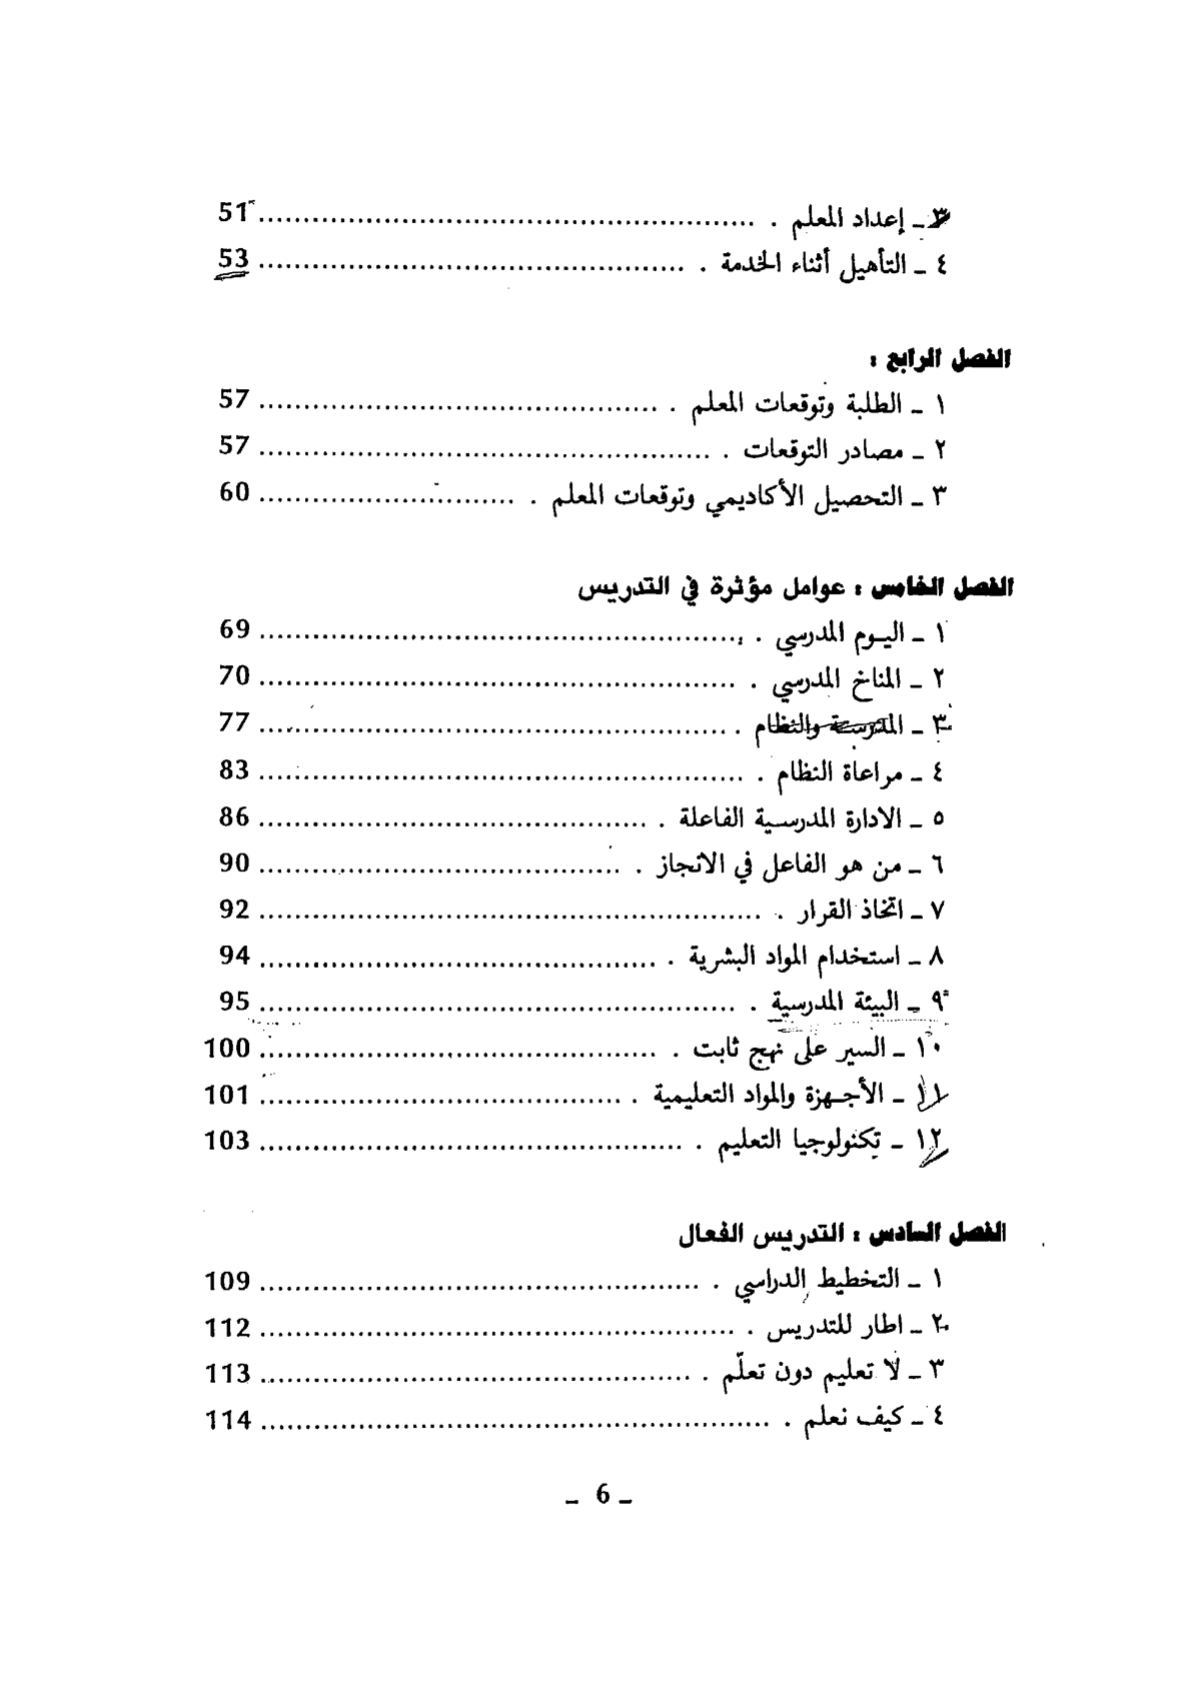 ٣ ـ إعداد المعلم . ........................................................ 51
٤ ـ التأهيل أثناء الخدمة . ................................................ 53
الفصل الرابع :
١ ـ الطلبة وتوقعات المعلم . ............................................. 57
٢ ـ مصادر التوقعات . .................................................... 57
٣ ـ التحصيل الأكاديمي وتوقعات المعلم . ............................. 60
الفصل الخامس : عوامل مؤثرة في التدريس
١ ـ اليوم المدرسي . ...................................................... 69
٢ ـ المناخ المدرسي . ...................................................... 70
٣ ـ المدرسة والنظام . ..................................................... 77
٤ ـ مراعاة النظام . ....................................................... 83
٥ ـ الادارة المدرسية الفاعلة . ............................................ 86
٦ ـ من هو الفاعل في الانجاز . ......................................... 90
٧ ـ اتخاذ القرار . ......................................................... 92
٨ ـ استخدام المواد البشرية . ............................................. 94
٩ ـ البيئة المدرسية . ...................................................... 95
١٠ ـ السير على نهج ثابت . ............................................. 100
١١ ـ الأجهزة والمواد التعليمية . ......................................... 101
١٢ ـ تكنولوجيا التعليم . ................................................ 103
الفصل السادس : التدريس الفعال
١ ـ التخطيط الدراسي . .................................................. 109
٢ ـ اطار للتدريس . ...................................................... 112
٣ ـ لا تعليم دون تعلّم . ................................................. 113
٤ ـ كيف نعلم . .......................................................... 114
ـ 6 ـ